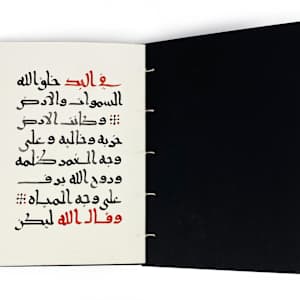 في البد خلق الله
السموات والارض
وكانت الارض
خربة وخالية وعلى
وجه الغمر ظلمة
وروح الله يرف
على وجه المياه
وقال الله ليكن